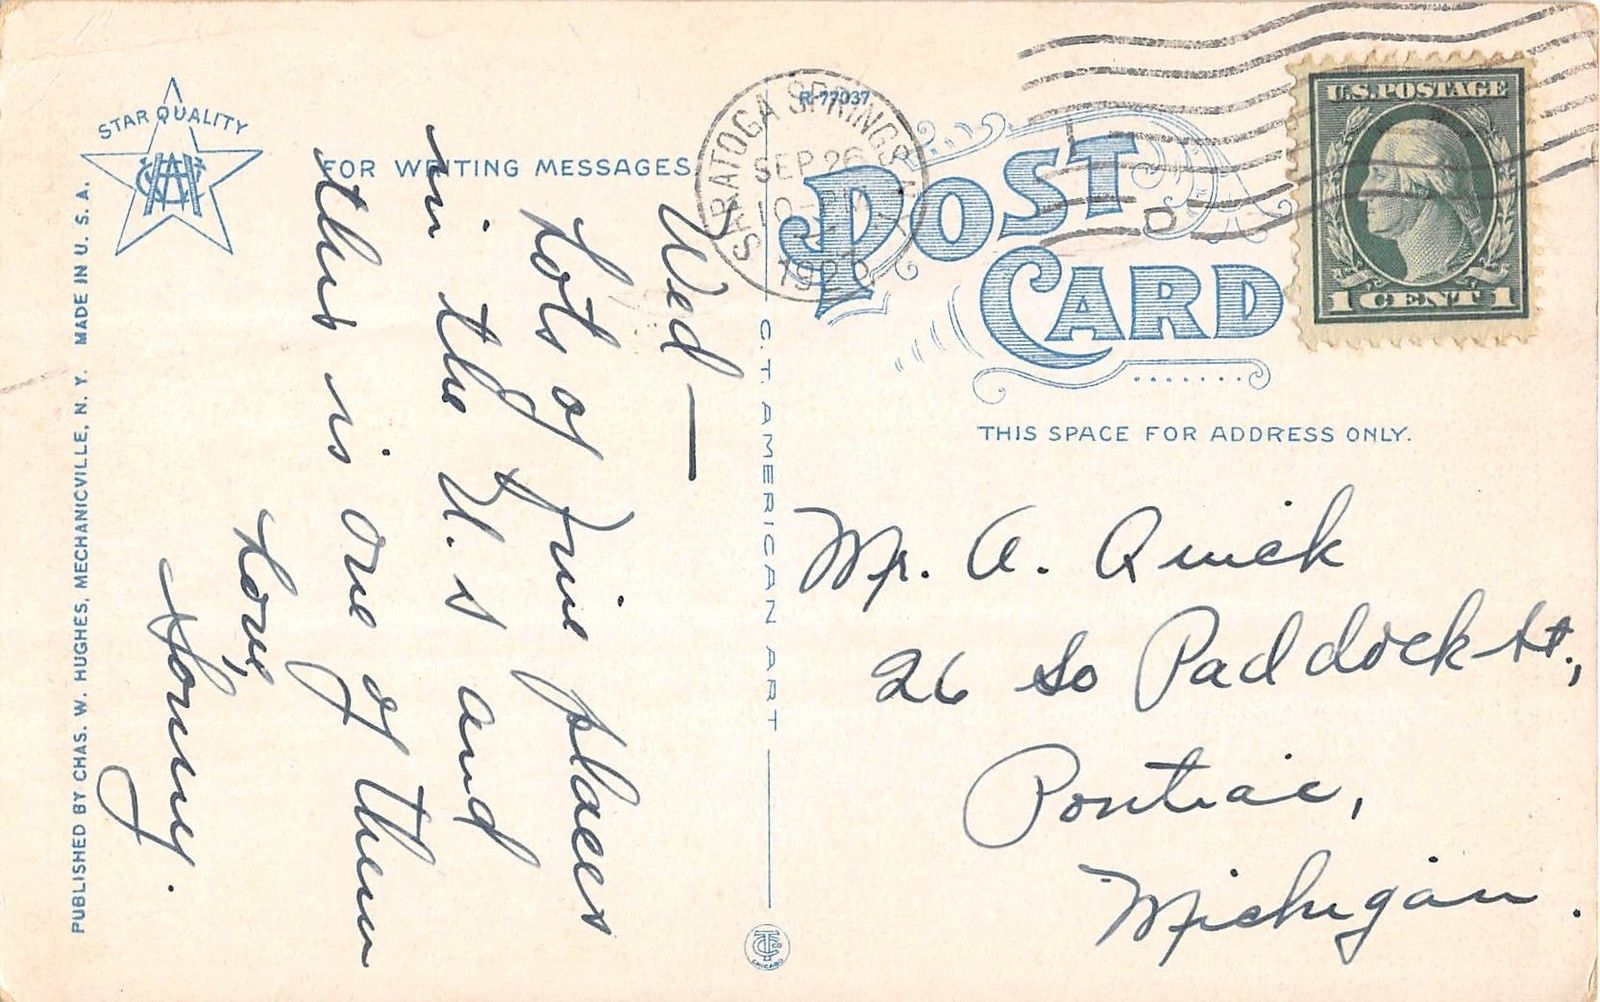 STAR QUALITY
PUBLISHED BY CHAS. W. HUGHES, MECHANICVILLE, N. Y. MADE IN U. S. A.
FOR WRITING MESSAGES
Wed —
Lots of fine places
in the U. S and
this is one of them
Love,
Sonny.
C. T. AMERICAN ART
CHICAGO
R-77037
SARATOGA SPRINGS
SEP 26
POST
CARD
U.S. POSTAGE
1 CENT 1
THIS SPACE FOR ADDRESS ONLY.
Mr. A. Quick
26 So Paddock St.,
Pontiac,
Michigan.